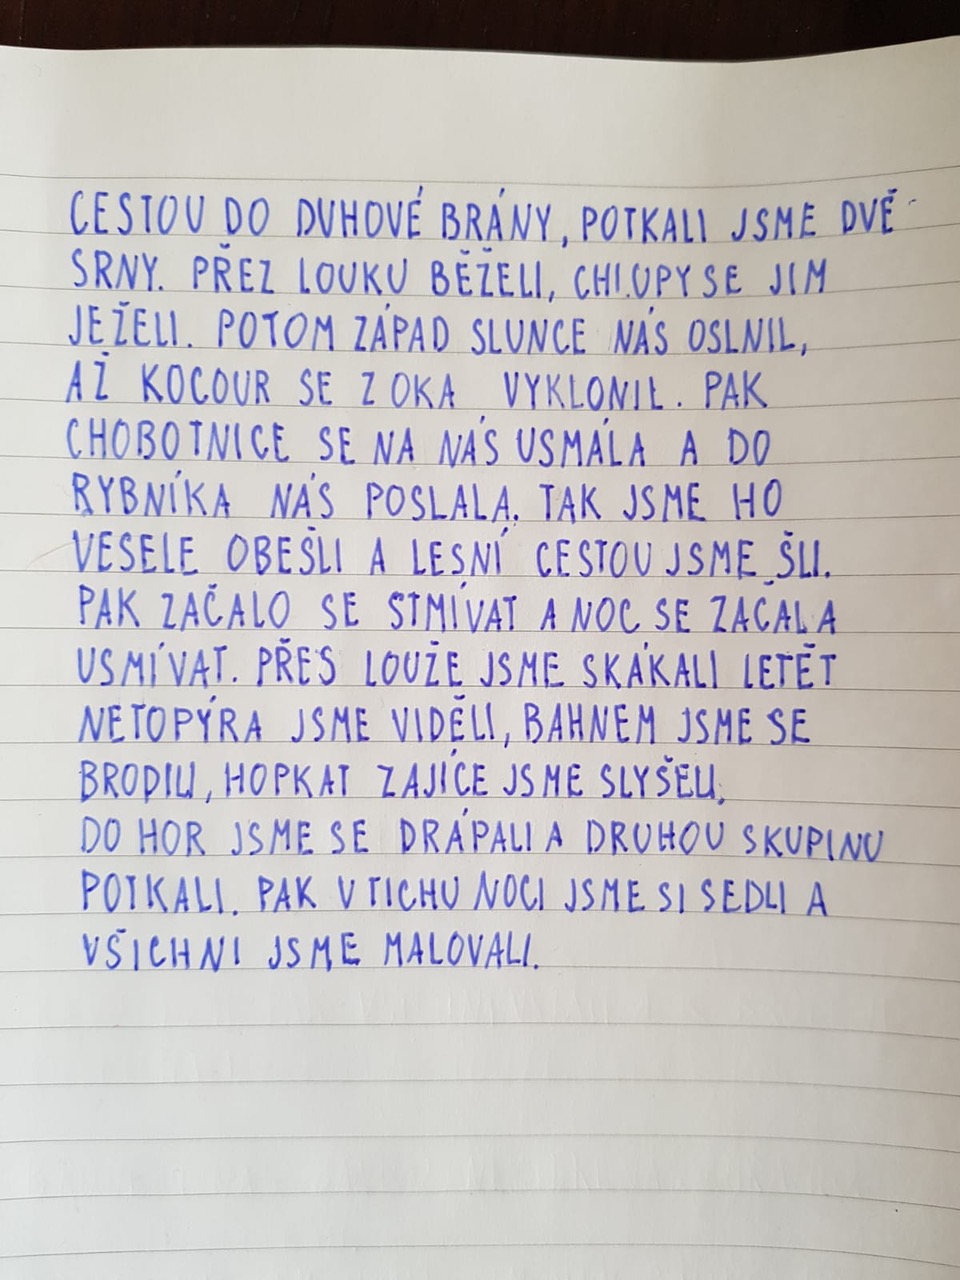 CESTOU DO DUHOVÉ BRÁNY, POTKALI JSME DVĚ
SRNY. PŘEZ LOUKU BĚŽELI, CHLUPY SE JIM
JEŽELI. POTOM ZÁPAD SLUNCE NÁS OSLNIL,
AŽ KOCOUR SE Z OKA VYKLONIL. PAK
CHOBOTNICE SE NA NÁS USMÁLA A DO
RYBNÍKA NÁS POSLALA. TAK JSME HO
VESELE OBEŠLI A LESNÍ CESTOU JSME ŠLI.
PAK ZAČALO SE STMÍVAT A NOC SE ZAČALA
USMÍVAT. PŘES LOUŽE JSME SKÁKALI LETĚT
NETOPÝRA JSME VIDĚLI, BAHNEM JSME SE
BRODILI, HOPKAT ZAJÍCE JSME SLYŠELI,
DO HOR JSME SE DRÁPALI A DRUHOU SKUPINU
POTKALI. PAK V TICHU NOCI JSME SI SEDLI A
VŠICHNI JSME MALOVALI.